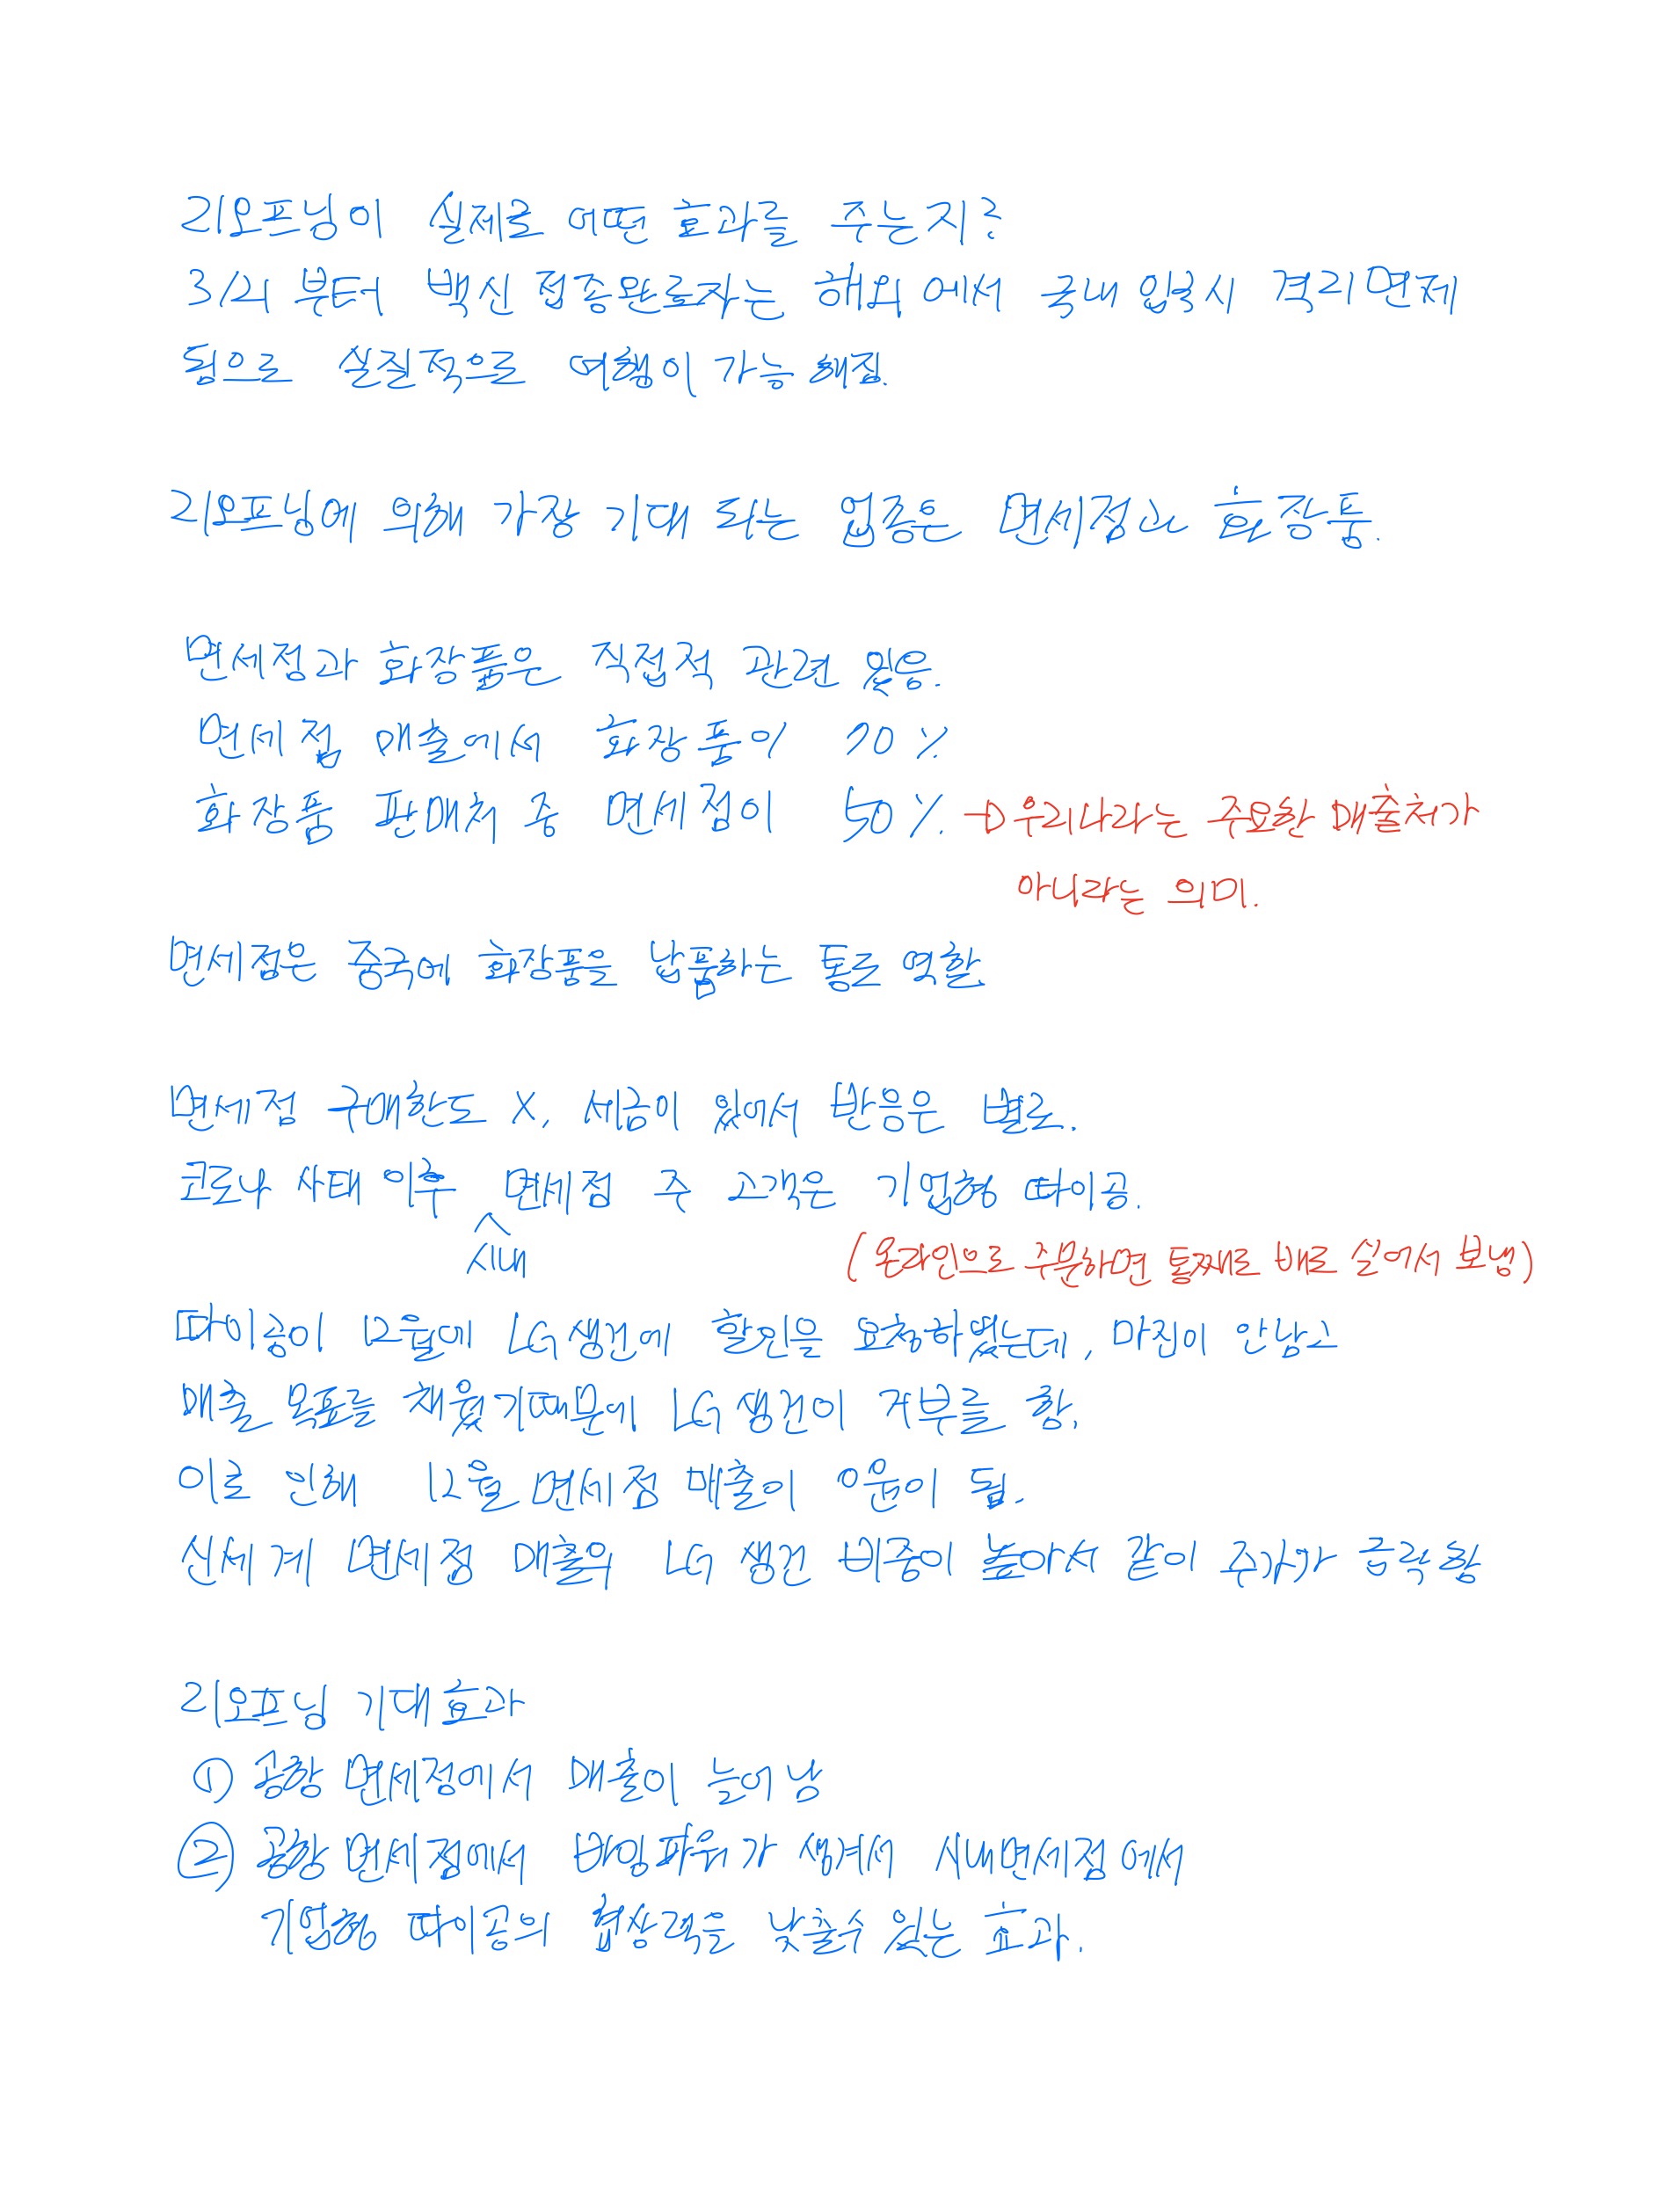 리오프닝이 실제로 어떤 효과를 주는지?
3/21 부터 백신 접종완료자는 해외에서 국내 입국시 격리면제
됨으로 실질적으로 여행이 가능해짐.
리오프닝에 의해 가장 기대 되는 업종은 면세점과 화장품.
면세점과 화장품은 직접적 관련 있음.
면세점 매출에서 화장품이 70%
화장품 판매처 중 면세점이 50% → 우리나라는 주요한 매출처가
아니라는 의미.
면세점은 중국에 화장품을 납품하는 통로 역할
면세점 구매한도 X, 세금이 있어서 반응은 별로.
코로나 사태 이후 면세점 주 고객은 기업형 따이공.
시내
(온라인으로 주문하면 통째로 배로 실어서 보냄)
따이공이 12월에 LG생건에 할인을 요청하였는데, 마진이 안남고
매출 목표를 채웠기때문에 LG생건이 거부를 함.
이로 인해 12월 면세점 매출이 0원이 됨.
신세계 면세점 매출의 LG 생건 비중이 높아서 같이 주가가 급락함
리오프닝 기대효과
① 공항 면세점에서 매출이 늘어남
② 공항 면세점에서 바잉파워가 생겨서 시내면세점에서
기업형 따이공의 협상력을 낮출수 있는 효과.